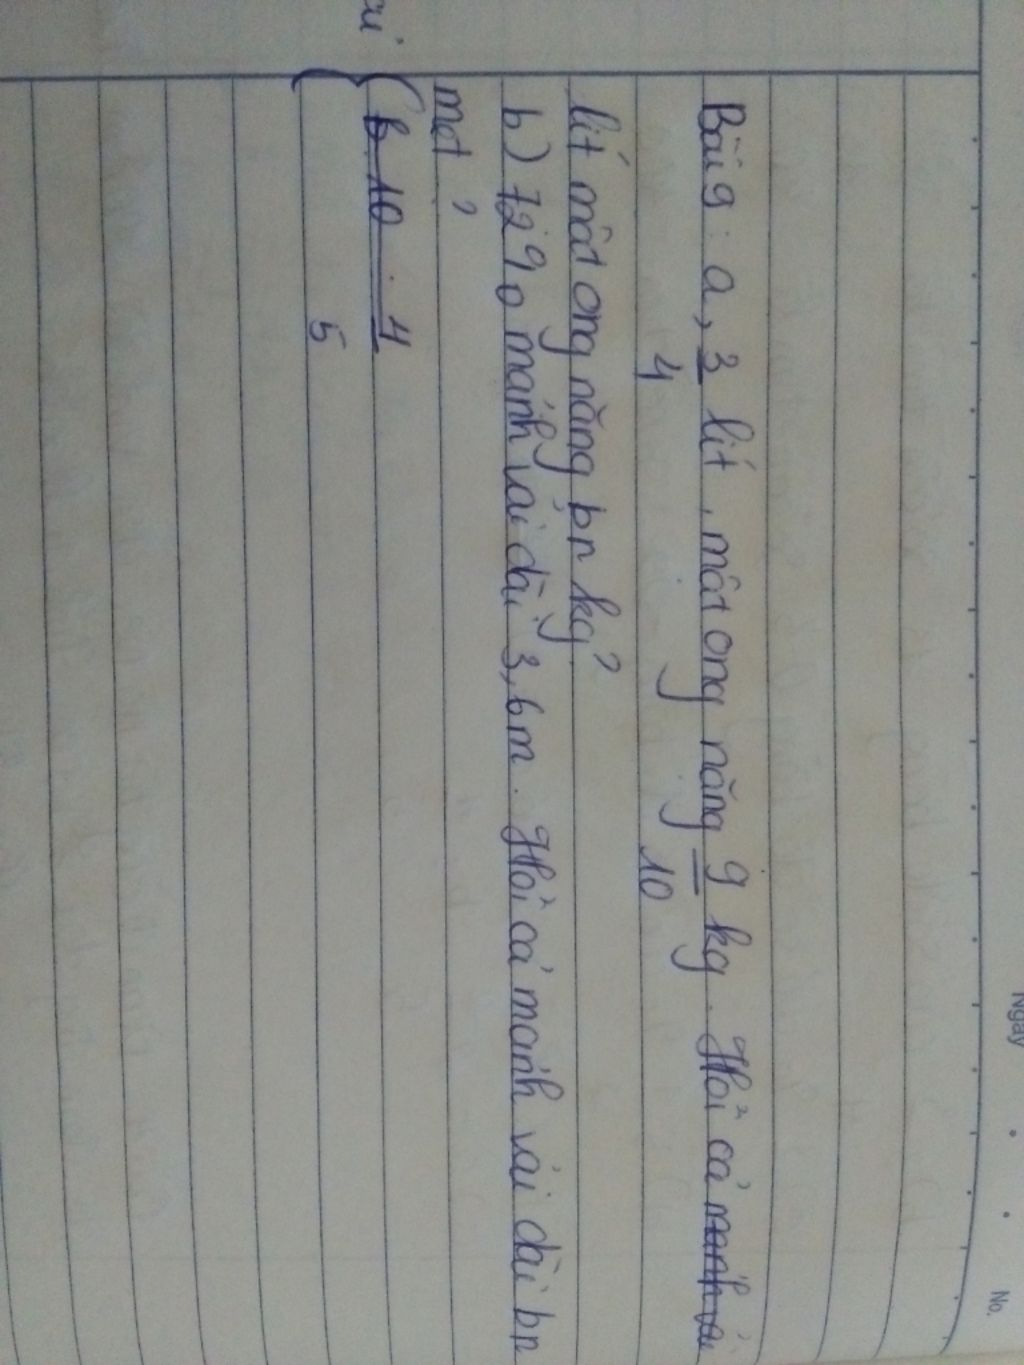 Ngày
No.
Bài 9: a, 3/4 lít mật ong nặng 9/10 kg. Hỏi cả
lít mật ong nặng bn kg?
b) 72% mảnh vải dài 3,6m. Hỏi cả mảnh vải dài bn
mét?
10 . 4/5